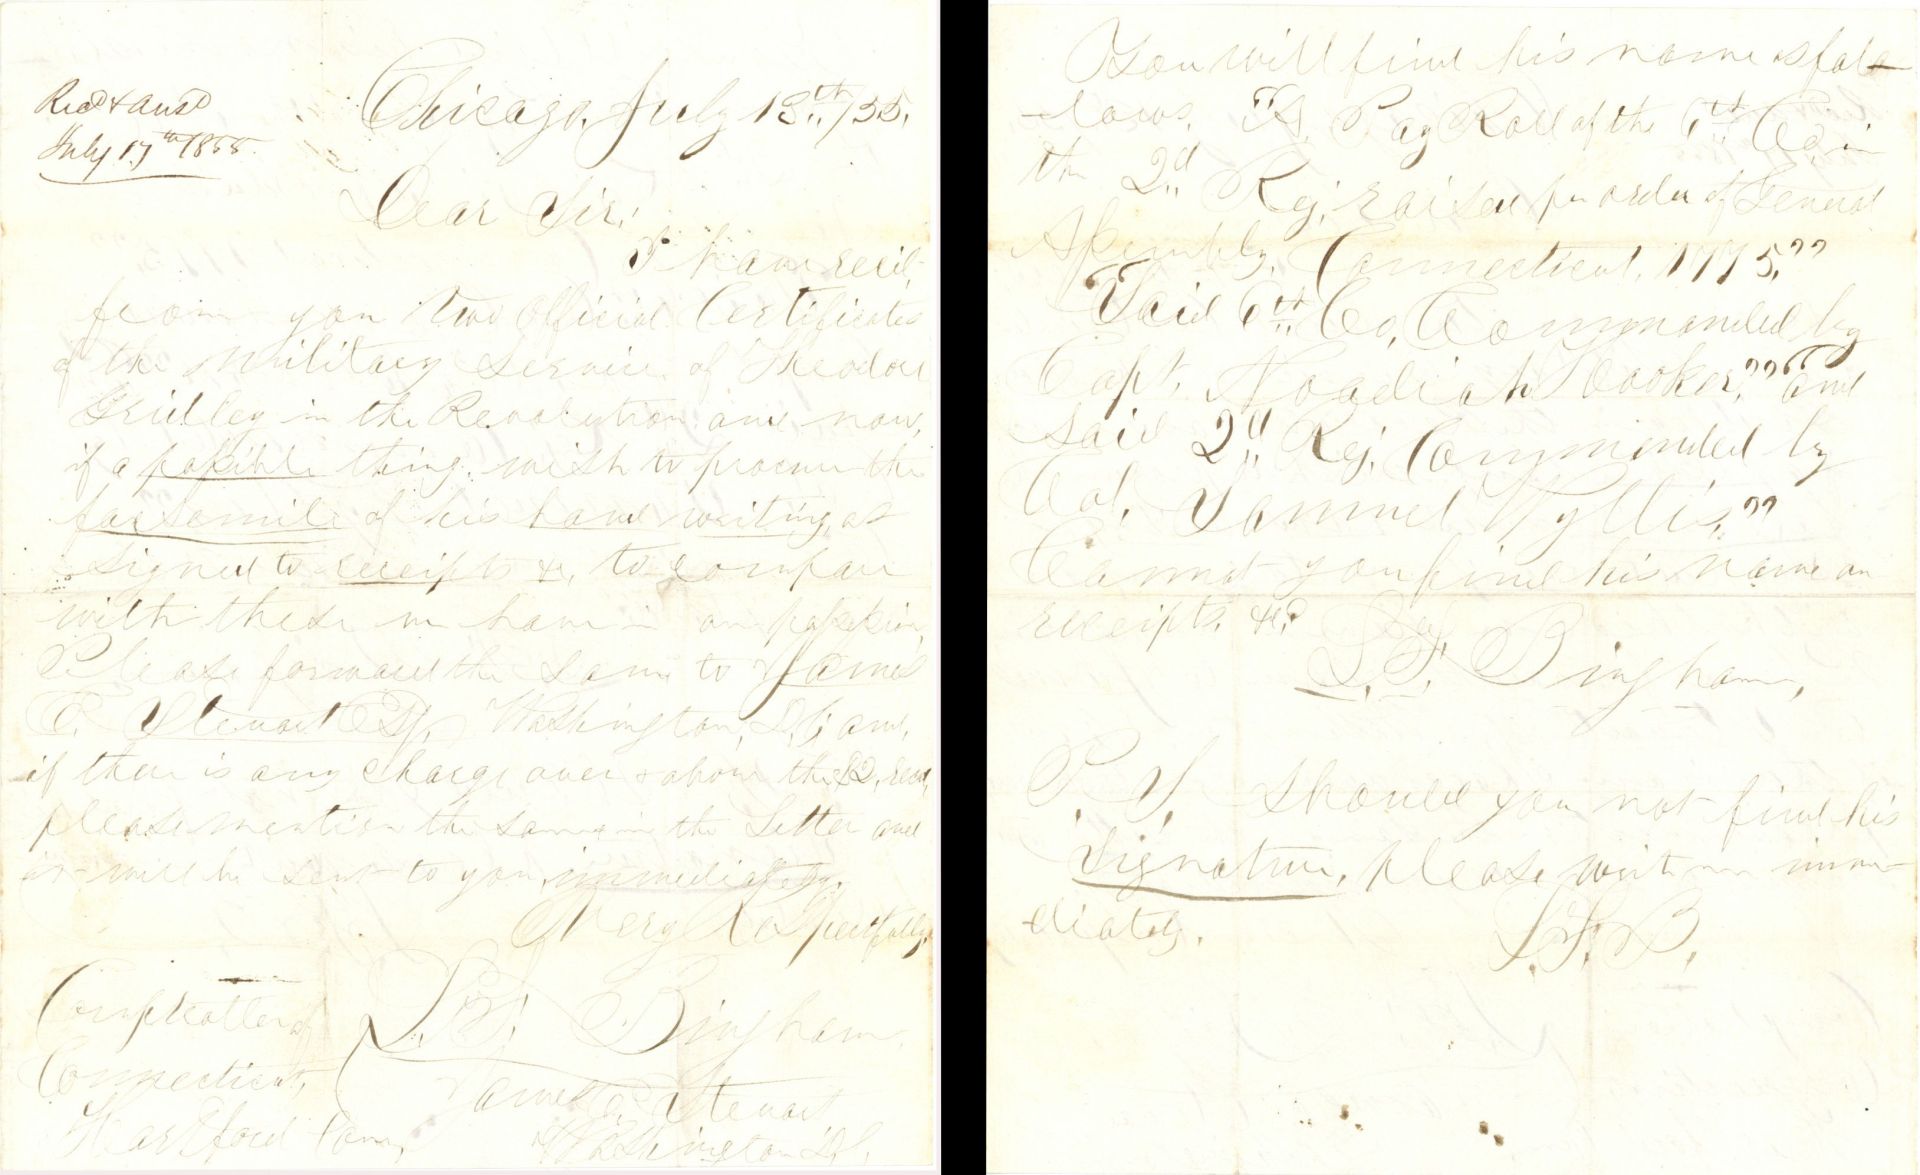 Recd & ansd
July 17th 1855.
Chicago, July 13th /55.
Dear Sir,
I have recd.
from you two Official Certificates
of the Military Service of Theodore
Gridley in the Revolution and now,
if a possible thing, wish to procure the
facsimile of his hand writing, as
signed to receipts &c, to compare
with these we have in our possession,
Please forward the same to James
E. Stewart Esq. Washington, D.C, and,
if there is any charge over & above the $2, recd,
please mention the same in the Letter and
it will be sent to you, immediately.
Very Respectfully,
Bingham,
Comptroller of
Connecticut,
Hartford Conn,
James E. Stewart
Washington D.C.
You will find his name as fol-
-lows, "A Pay Roll of the 6th Co, in
the 2d Reg, raised per order of General
Assembly, Connecticut, 1775,"
"Said 6th Co, Commanded by
Capt. Noadiah Hooker," "and
said 2d Reg, Commanded by
Col, Samuel Wyllis,"
Cannot you find his name on
receipts, &c?
Bingham,
P.S. Should you not find his
signature, please write me imme-
diately.
B.